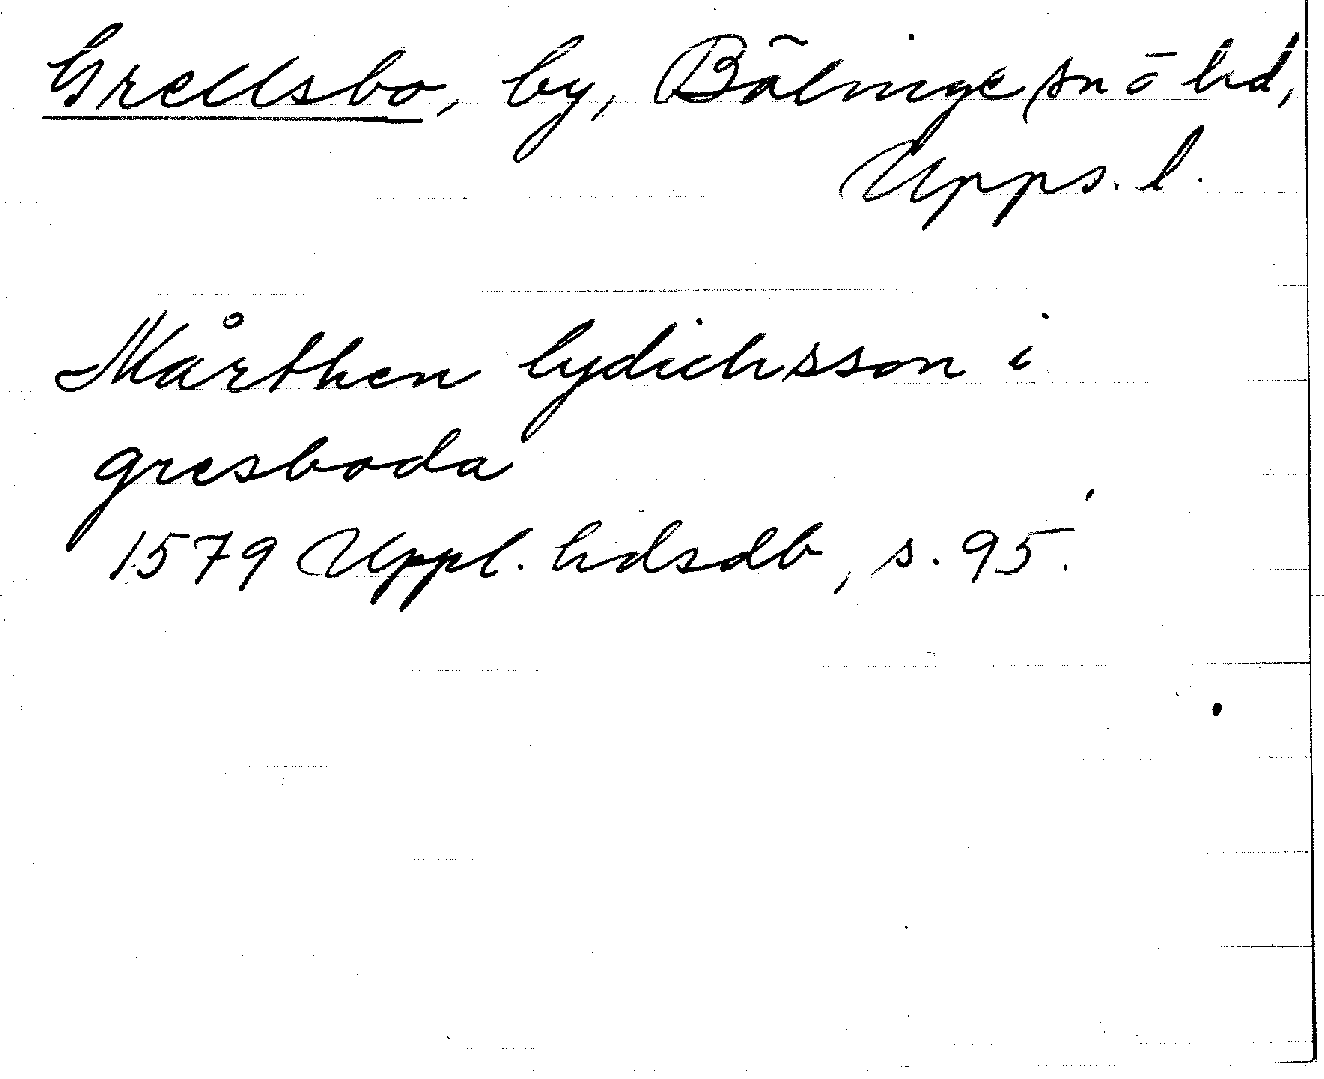 Grellsbo, by, Bälinge sn o hd,
Upps. l.
Mårthen lydichsson i
gresboda
1579 Uppl. hdsdb, s. 95.